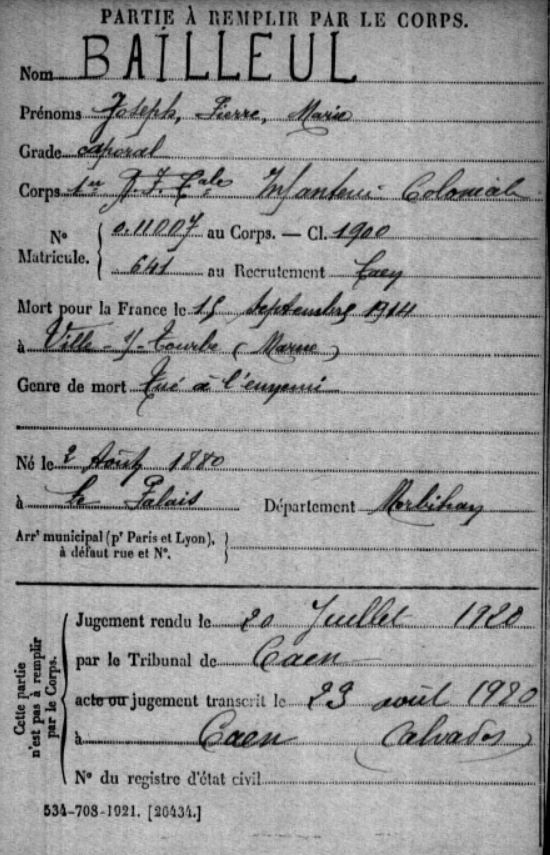 PARTIE À REMPLIR PAR LE CORPS.
Nom BAILLEUL
Prénoms Joseph, Pierre, Marie
Grade caporal
Corps 1er R.I.Cale Infanterie Coloniale
No Matricule. { 0.11007 au Corps. — Cl. 1900
641 au Recrutement Caen
Mort pour la France le 15 septembre 1914
à Ville-s/-Tourbe (Marne)
Genre de mort Tué à l'ennemi
Né le 2 Août 1880
à Le Palais Département Morbihan
Arrt municipal (pr Paris et Lyon),
à défaut rue et No.
Cette partie
n'est pas à remplir
par le Corps.
Jugement rendu le 20 Juillet 1920
par le Tribunal de Caen
acte ou jugement transcrit le 23 août 1920
à Caen (Calvados)
No du registre d'état civil
534-708-1921. [26434.]